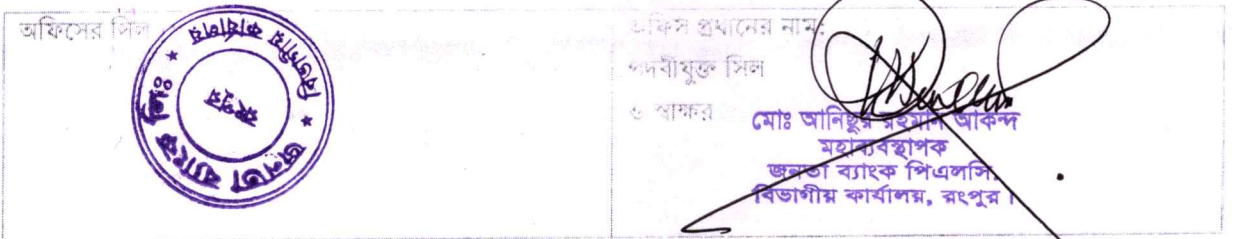 অফিসের সিল
জনতা ব্যাংক লিঃ
বিভাগীয় কার্যালয়
রংপুর
অফিস প্রধানের নাম:
পদবীযুক্ত সিল
ও স্বাক্ষর
মোঃ আনিছুর রহমান আকন্দ
মহাব্যবস্থাপক
জনতা ব্যাংক পিএলসি.
বিভাগীয় কার্যালয়, রংপুর।